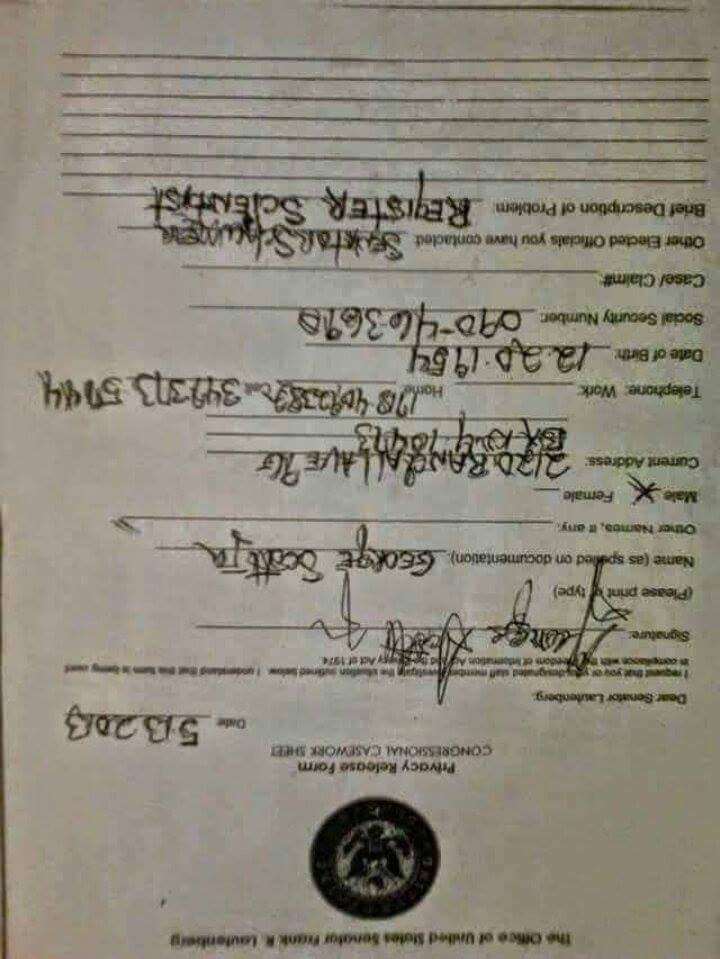 The Office of United States Senator Frank R. Lautenberg
Privacy Release Form
CONGRESSIONAL CASEWORK SHEET
Date 5 13 2013
Dear Senator Lautenberg:
I request that you or your designated staff member investigate the situation outlined below. I understand that this form is being used
in compliance with the Freedom of Information Act and the Privacy Act of 1974.
Signature: George Scott Jr
(Please print or type)
Name (as spelled on documentation): GEORGE SCOTT JR
Other Names, if any:
Male X Female
Current Address: 2120 RANDALL AVE
Telephone: Work: Home: Cell:
Date of Birth: 12.20.1954
Social Security Number:
Case/ Claim#:
Other Elected Officials you have contacted: SENATOR
Brief Description of Problem: REGISTER SCIENTIST